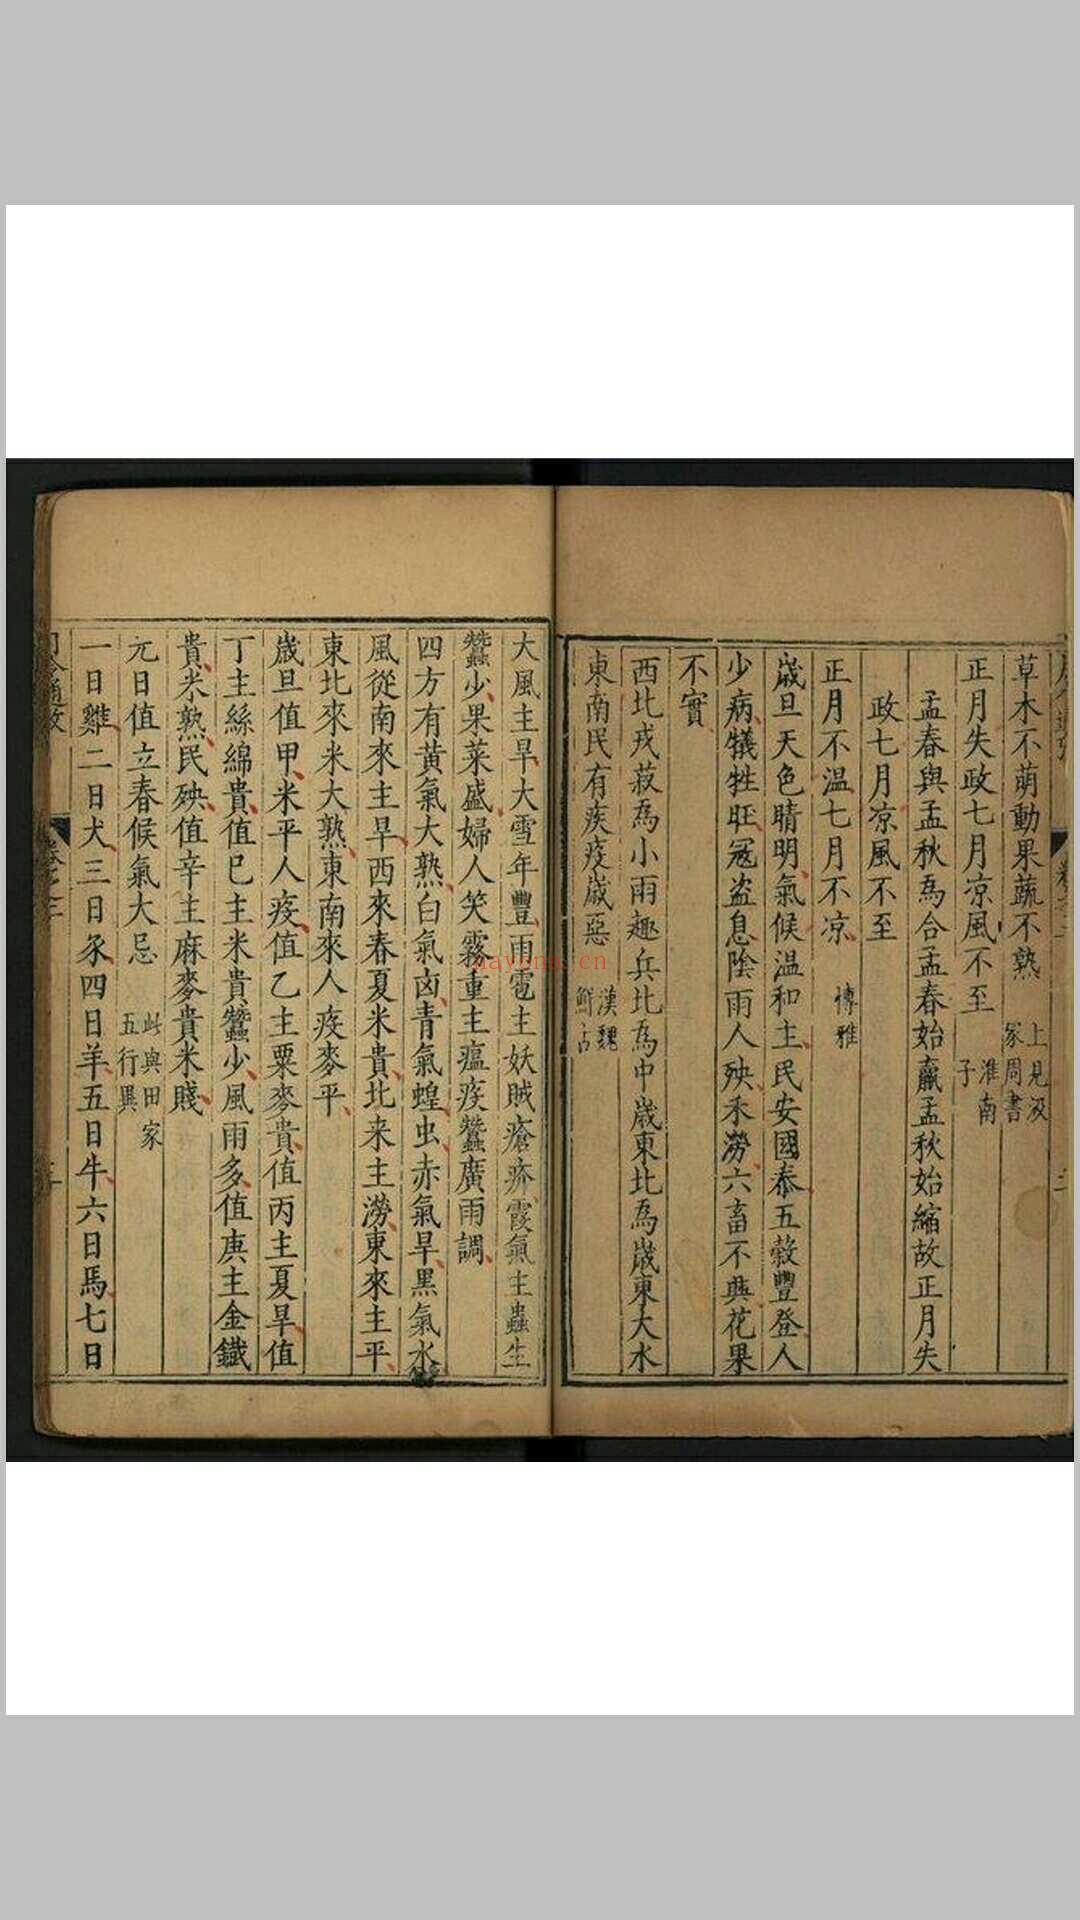 草木不萌動果蔬不熟 上見汲冢周書
正月失政七月凉風不至 淮南子
孟春與孟秋為合孟春始贏孟秋始縮故正月失
政七月凉風不至
正月不温七月不凉 博雅
歲旦天色晴明氣候温和主民安國泰五穀豐登人
少病犠牲旺冦盗息陰雨人殃禾澇六畜不興花果
不實
西北戎菽為小雨趣兵北為中歲東北為歲東大水
東南民有疾疫歲惡 漢魏鮮占
大風主旱大雪年豐雨雹主妖賊瘡疥霞氣主蟲生
蠶少果菜盛婦人笑霧重主瘟疾蠶廣雨調
四方有黄氣大熟白氣凶青氣蝗虫赤氣旱黒氣水
風從南來主旱西來春夏米貴北来主澇東來主平
東北來米大熟東南來人疾麥平
歲旦值甲米平人疫值乙主粟麥貴值丙主夏旱值
丁主絲綿貴值巳主米貴蠶少風雨多值庚主金鐵
貴米熟民殃值辛主麻麥貴米賤
元日值立春候氣大忌 此與田家五行異
一日雞二日犬三日豕四日羊五日牛六日馬七日
月令通攷 卷之二
hayona.cn